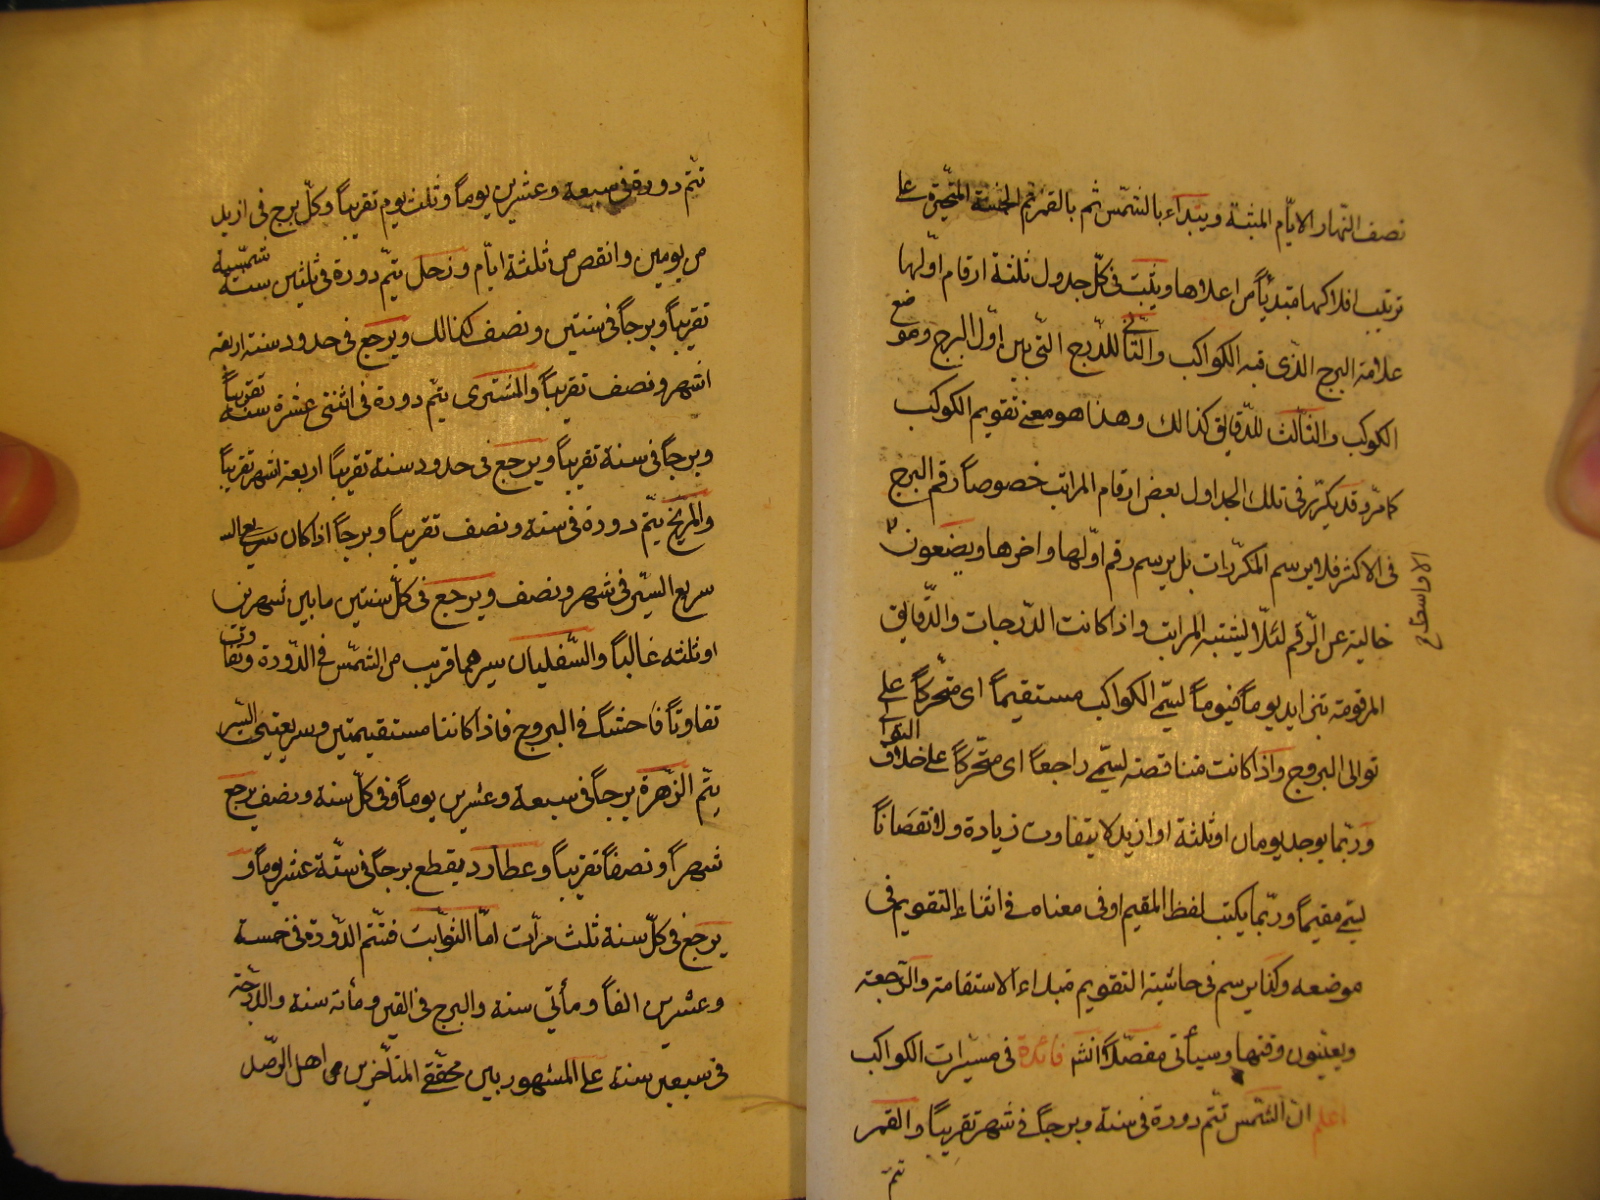 نصف النّهار الايّام المثبتة ويبتداء بالشّمس ثم بالقمر ثم الخمسة المتحيّرة على
ترتيب افلاكها مبتدئاً من اعلاها ويثبت فى كلّ جدول ثلثة ارقام اوّلها
علامة البرج الذى فيه الكواكب والثّانى للدّرج التّى بين اوّل البرج وموضع
الكوكب والثّالث للدّقايق كذالك وهذا هو معنى تقويم الكوكب
كما مرّ وقد يكرّر فى تلك الجداول بعض ارقام المراتب خصوصاً رقم البرج
فى الاكثر فلا يرسم المكرّرات بل يرسم رقم اوّلها واخرها ويضعون
الاواسط
خالية عن الرّقم لئلّا يشتبه المراتب واذا كانت الدّرجات والدّقايق
المرقومة تتزايد يوماً فيوماً ليسمّى الكواكب مستقيماً اى متحّركاً على
توالى البروج واذا كانت متناقصة ليسمّى راجعاً اى متحّركاً على خلاف التوالى
وربّما يوجد يومان او ثلثة او ازيد لا يتفاوت زيادة ولا نقصاناً
ليسمّى مقيماً وربّما يكتب لفظ المقيم او فى معناه فى اثناء التقويم فى
موضعه وكذا يرسم فى حاشية التقويم مبداء الاستقامة والرّجعة
ويعيّنون وقتها وسيأتى مفصّلاً انشّ فائدة فى مسيرات الكواكب
اعلم انّ الشّمس تتّم دورة فى سنة وبرجاً فى شهر تقريباً والقمر
تتمّ
تتمّ دورة فى سبعة وعشرين يوماً وثلث يوم تقريباً وكلّ برج فى ازيد
من يومين وانقص من ثلثة ايّام وزحل يتمّ دورة فى ثلثين سنة شمسية
تقريباً وبرجاً فى سنتين ونصف كذالك ويرجع فى حدود سنة اربعة
اشهر ونصف تقريباً والمشترى يتمّ دورة فى اثنتى عشرة سنة تقريباً
وبرجاً فى سنة تقريباً ويرجع فى حدود سنة تقريباً اربعة اشهر تقريباً
والمرّيخ يتمّ دورة فى سنة ونصف تقريباً وبرجاً اذا كان سريع السـ
سريع السّير فى شهر ونصف ويرجع فى كلّ سنتين ما بين شهرين
او ثلثه غالباً والسّفليان سيرهما قريب من الشمّس فى الدّورة
تفاوتاً فاحشاً فى البروج فاذا كانتا مستقيمتين وسريعتى السّير
يتمّ الزّهرة برجاً فى سبعة وعشرين يوماً وفى كلّ سنة ونصف يرجع
شهراً ونصفاً تقريباً وعطارد يقطع برجاً فى ستّة عشر يوماً و
يرجع فى كلّ سنة ثلث مرّات امّا الثوّابت فتتّم الدّورة فى خمسة
وعشرين الفاً ومأتى سنة والبرج فى الفين ومأته سنة والدّرجة
فى سبعين سنة على المشهور بين محقّقى المتأخّرين من اهل الرّصد